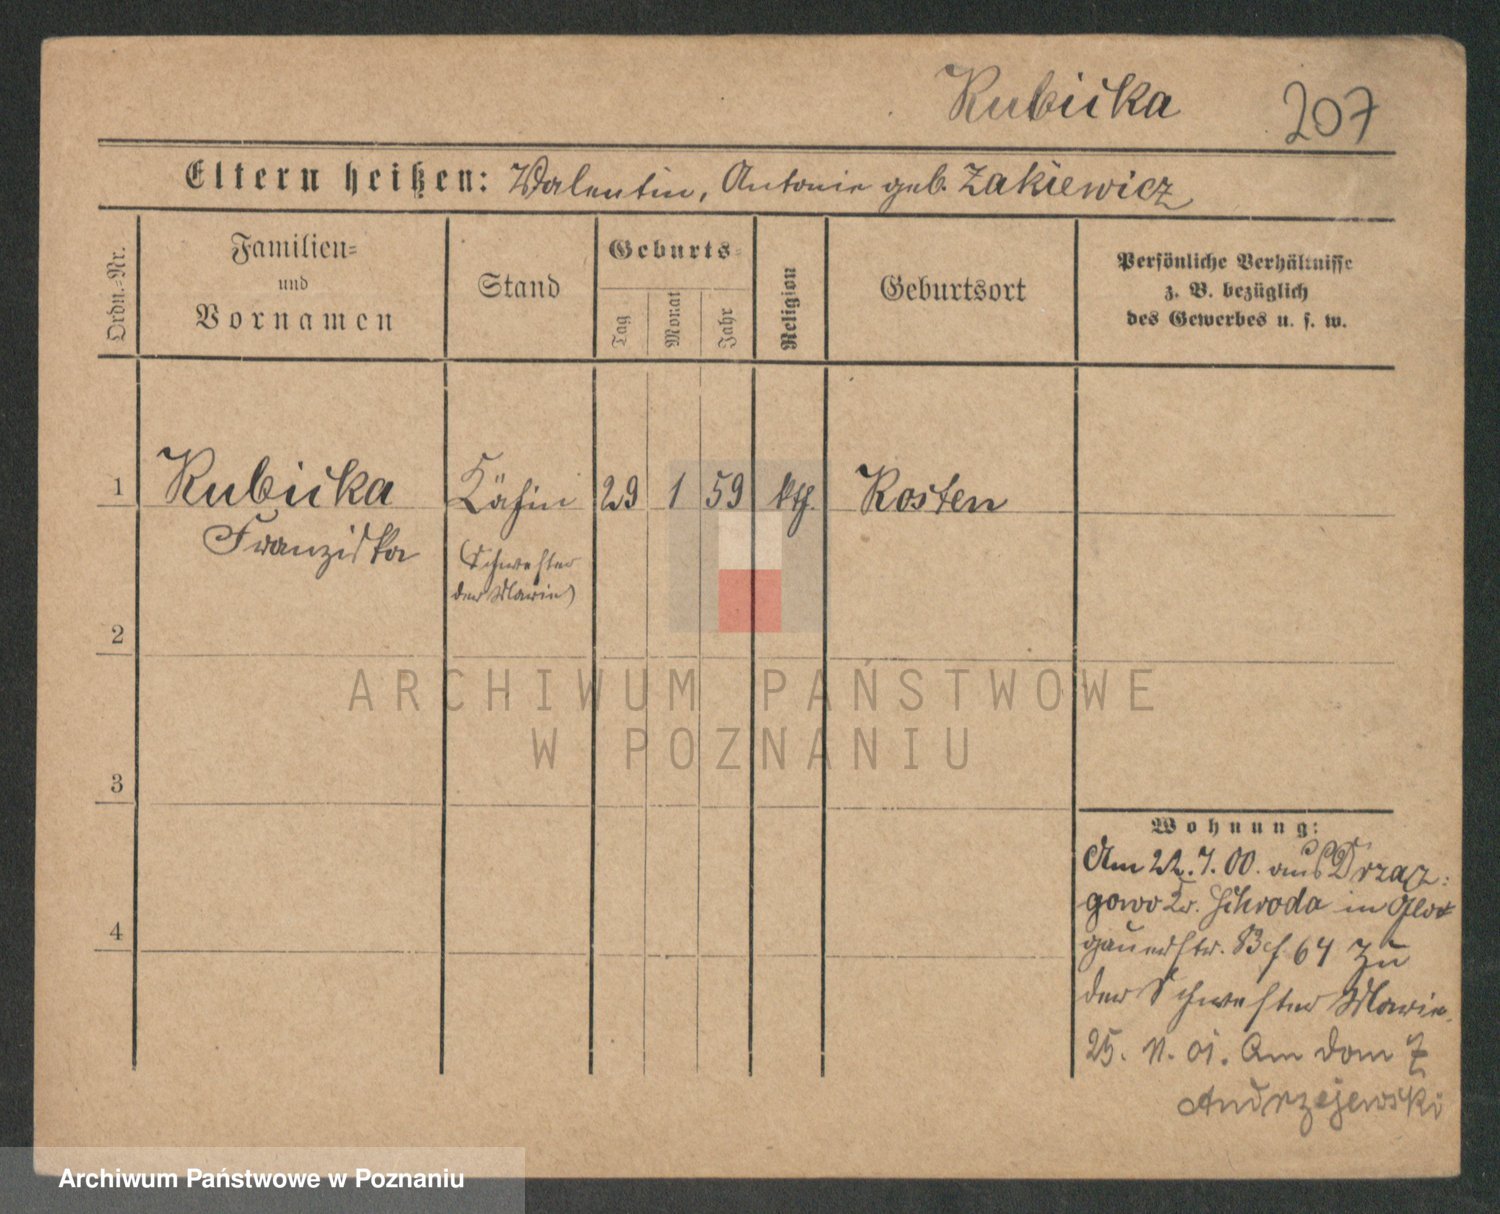 Rubicka 207
Eltern heißen: Valentin, Antonie geb. Zakiewicz
Ordn.-Nr.
Familien-
und
Vornamen
Stand
Geburts-
Tag
Monat
Jahr
Religion
Geburtsort
Persönliche Verhältnisse
z. B. bezüglich
des Gewerbes u. s. w.
1 Rubicka 29 1 59 kth. Kosten
Franziska (Schwester
der Marie)
2
3
4
Wohnung:
Am 22.7.00. aus Drazgowo
Kr. Schroda in Glo-
gauerstr. 64 zu
der Schwester Marie.
25. 11. 01. Am Dom 7
Andrzejewski
ARCHIWUM PAŃSTWOWE
W POZNANIU
Archiwum Państwowe w Poznaniu